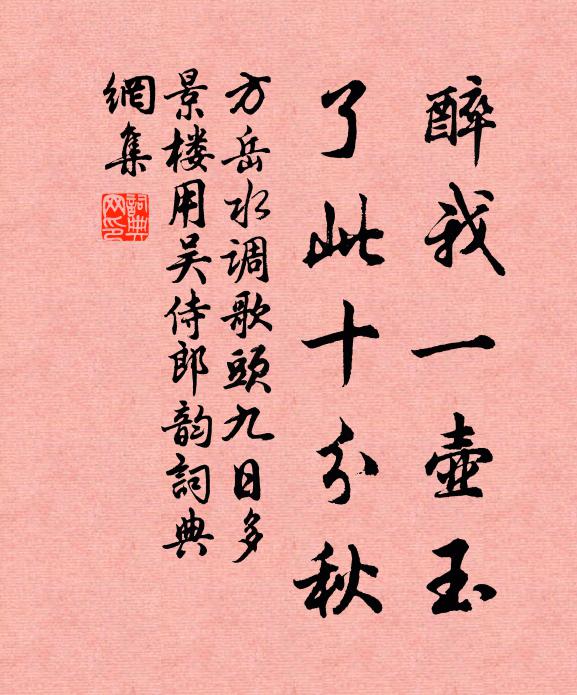 醉我一壶玉
了此十分秋
方岳水调歌頭九日多
景楼用吴侍郎韵詞典
網集
詞典网印